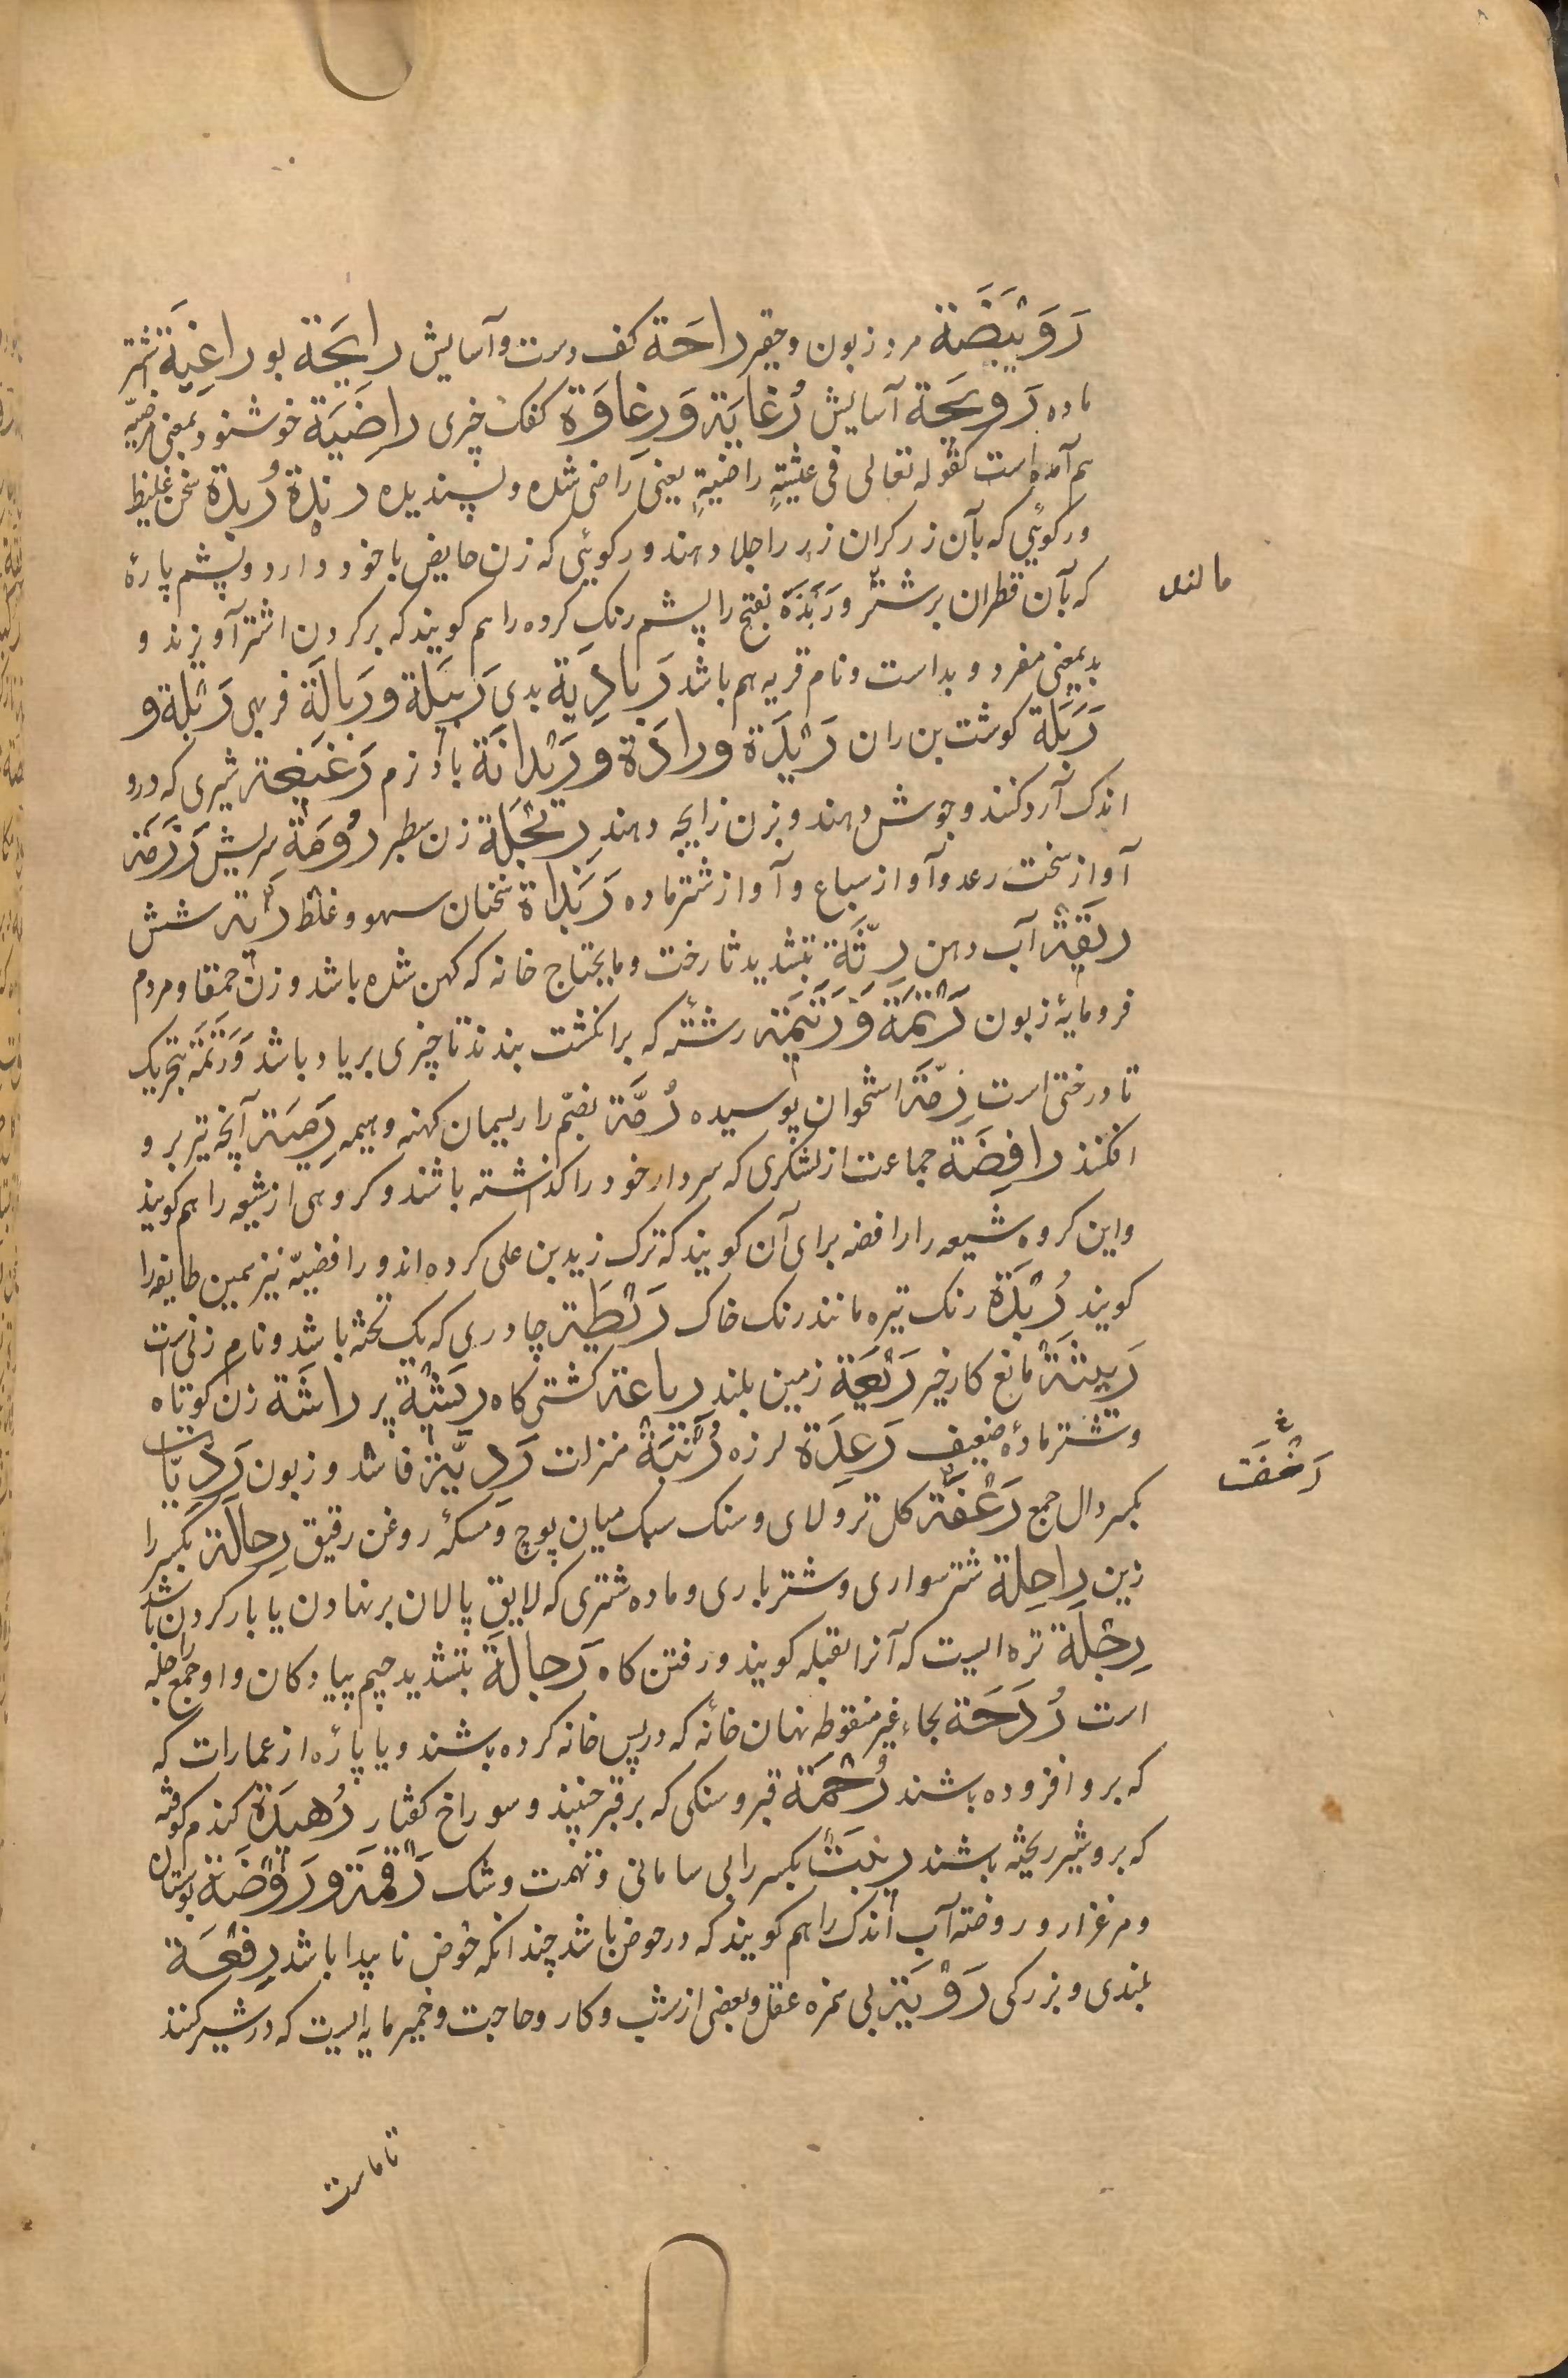 رَوَیْبَضَة مرد زبون و حقیر راحَة کف دست و آسایش رایِحَة بو راغِیَة شتر
ماده رَویحَة آسایش رُغایَة وَرِغاوَة کفک چیزی راضِیَة خوشنود و بمعنی مرضیه
هم آمده است کقوله تعالی فی عیشةٍ راضیةٍ یعنی راضی شده و پسندیده رِبْذَة رُبذَة سخن غلیظ
و رکوئی که بآن زرکران زر را جلا دهند و رکوئی که زن حایض با خود دارد و پشم پارهٔ
که بآن قطران بر شتر و رَبَذَة بفتح را پشم رنک کرده را هم کویند که بر کردن اشتر آویزند و
مالند
بد بمعنی مفرد و بد است و نام قریه هم باشد رَبادِیَة بدی رَبیَلَة و رَبالَة فربهی رَبْلَة و
رَبَلَة کوشت بن ران رَیْدَة و رادَة و رَیْدانَة باد نرم رَغیغَة شیری که درو
اندک آرد کنند و جوش دهند و بزن زایجه دهند رِبَحْلَة زن سطبر رُومَة سریش رَزَمَة
آواز سخت رعد و آواز سباع و آواز شتر ماده رَبَذاة سخنان سهو و غلط رِئَة شش
ریقَة آب دهن رِثَّة بتشدید ثا رخت و مایحتاج خانه که کهن شده باشد و زن حمقا و مردم
فرومایهٔ زبون رَتْمَة وَرَتیمَة رشته که بر انکشت بندند تا چیزی بر یاد باشد وَرَتَمَة بتحریک
تا درختی است رِمّة استخوان پوسیده رُمَّة بضم را ریسمان کهنه و هیمه رَمِیَة آنچه تیر برو
افکنند رافِضَة جماعت از لشکری که سردار خود را کذاشته باشند و کروهی از شیعه را هم کویند
و این کروه شیعه را رافضه برای آن کویند که ترک زید بن علی کرده اند و رافضیّه نیز همین طایفه را
کویند رُبْدَة رنک تیره مانند رنک خاک رَیْطَة چادری که یک تخته باشد و نام زنی است
رَبیثَة مانع کار خیر رَیْعَة زمین بلند رباعة کشتی کاه ریشَة پر راشَة زن کوتاه
و شتر مادهٔ ضعیف رَعِدَة لرزه رُتْبَة منزلت رَدِیَّة فاسد و زبون رَدِیّات
بکسر دال جمع رَغْفَة کل تر و لای و سنک سبک میان پوچ و مسکهٔ روغن رقیق رِحالَة بکسر را
رَخْفَت
زین راحِلة شتر سواری و شتر باری و ماده شتری که لایق پالان بر نهادن یا بار کردن باشد
رِجْلَة تره ایست که آنرا بقله کویند و رفتن کاه رَجالَة بتشدید جیم پیادکان و او جمع راجله
است رُدَحَة بحاء غیر منقوطه نهان خانه که در پس خانه کرده باشند و یا پارهٔ از عمارات که
که برو افزوده باشند رُجْمَة قبر و سنکی که بر قبر چنیند و سوراخ کفتار رَهیدَة کندم کوفته
که برو شیر ریخته باشند ریبَت بکسر را بی سامانی و تهمت و شک رَقْمَة و رَوْضَة بوستان
و مرغزار و روضته آب اندک را هم کویند که در حوض باشد چندانکه حوض نا پیدا باشد رِفْعَة
بلندی و بزرکی رَوْبَة بی همزه عقل و بعضی از شب و کار و حاجت و خمیر مایه ایست که در شیر کنند
تا ماست